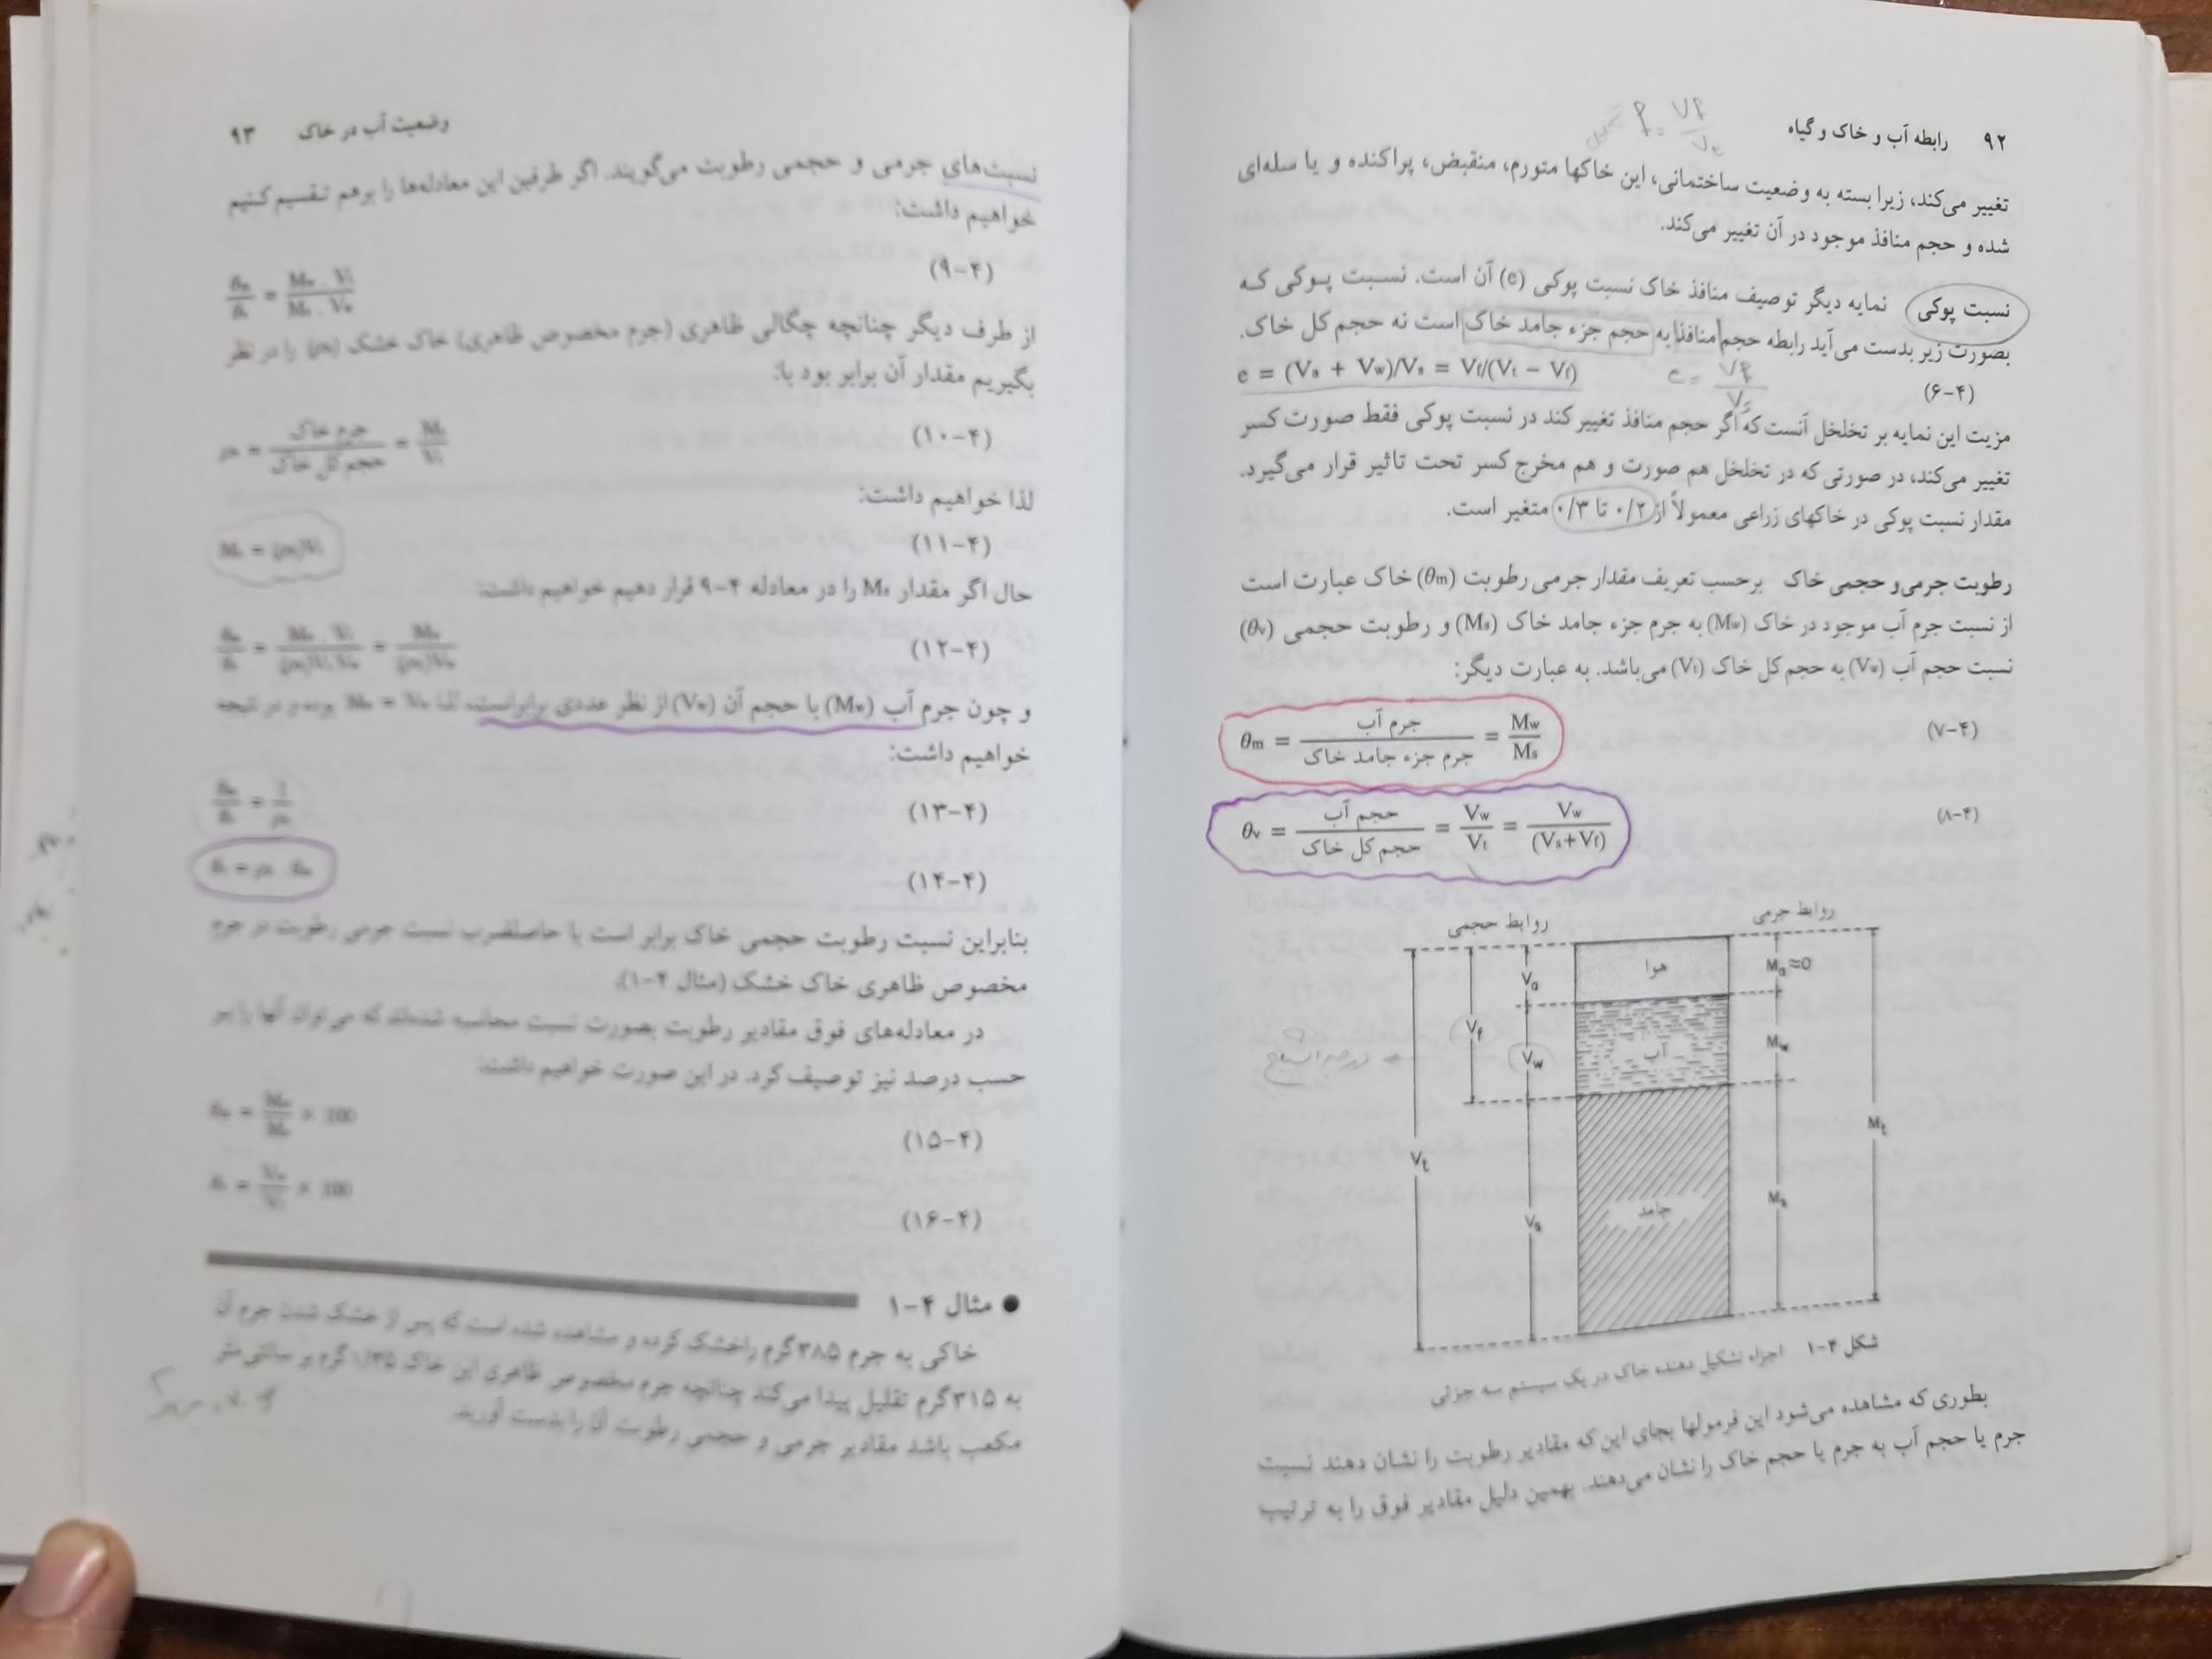 ۹۲ رابطه آب و خاک و گیاه
تغییر می‌کند، زیرا بسته به وضعیت ساختمانی، این خاکها متورم، منقبض، پراکنده و یا سله‌ای
شده و حجم منافذ موجود در آن تغییر می‌کند.
نسبت پوکی نمایه دیگر توصیف منافذ خاک نسبت پوکی (e) آن است. نسبت پوکی که
بصورت زیر بدست می‌آید رابطه حجم منافذ به حجم جزء جامد خاک است نه حجم کل خاک.
e = (Va + Vw)/Vs = Vf/(Vt − Vf) e = Vf/Vs (۴-۶)
مزیت این نمایه بر تخلخل آنست که اگر حجم منافذ تغییر کند در نسبت پوکی فقط صورت کسر
تغییر می‌کند، در صورتی که در تخلخل هم صورت و هم مخرج کسر تحت تاثیر قرار می‌گیرد.
مقدار نسبت پوکی در خاکهای زراعی معمولاً از ۰/۲ تا ۰/۳ متغیر است.
رطوبت جرمی و حجمی خاک برحسب تعریف مقدار جرمی رطوبت (θm) خاک عبارت است
از نسبت جرم آب موجود در خاک (Mw) به جرم جزء جامد خاک (Ms) و رطوبت حجمی (θv)
نسبت حجم آب (Vw) به حجم کل خاک (Vt) می‌باشد. به عبارت دیگر:
θm = جرم آب / جرم جزء جامد خاک = Mw/Ms (۴-۷)
θv = حجم آب / حجم کل خاک = Vw/Vt = Vw/(Vs+Vf) (۴-۸)
روابط حجمی روابط جرمی
هوا
آب
جامد
Va
Vf
Vw
Vt
Vs
Ma≈0
Mw
Ms
Mt
شکل ۴-۱ اجزاء تشکیل دهنده خاک در یک سیستم سه جزئی
بطوری که مشاهده می‌شود این فرمولها بجای این که مقادیر رطوبت را نشان دهند نسبت
جرم یا حجم آب به جرم یا حجم خاک را نشان می‌دهند. بهمین دلیل مقادیر فوق را به ترتیب
وضعیت آب در خاک ۹۳
نسبت‌های جرمی و حجمی رطوبت می‌گویند. اگر طرفین این معادله‌ها را برهم تقسیم کنیم
خواهیم داشت:
(۴-۹)
از طرف دیگر چنانچه چگالی ظاهری (جرم مخصوص ظاهری) خاک خشک را در نظر
بگیریم مقدار آن برابر بود با:
جرم خاک / حجم کل خاک (۴-۱۰)
لذا خواهیم داشت:
(۴-۱۱)
حال اگر مقدار Ms را در معادله ۴-۹ قرار دهیم خواهیم داشت:
(۴-۱۲)
و چون جرم آب (Mw) با حجم آن (Vw) از نظر عددی برابراست، لذا Mw = Vw بوده و در نتیجه
خواهیم داشت:
(۴-۱۳)
(۴-۱۴)
بنابراین نسبت رطوبت حجمی خاک برابر است با حاصلضرب نسبت جرمی رطوبت در جرم
مخصوص ظاهری خاک خشک (مثال ۴-۱).
در معادله‌های فوق مقادیر رطوبت بصورت نسبت محاسبه شده‌اند که می‌توان آنها را بر
حسب درصد نیز توصیف کرد. در این صورت خواهیم داشت:
× 100 (۴-۱۵)
× 100 (۴-۱۶)
● مثال ۴-۱
خاکی به جرم ۳۸۵ گرم راخشک کرده و مشاهده شده است که پس از خشک شدن جرم آن
به ۳۱۵ گرم تقلیل پیدا می‌کند چنانچه جرم مخصوص ظاهری این خاک ۱/۳۵ گرم بر سانتی‌متر
مکعب باشد مقادیر جرمی و حجمی رطوبت آن را بدست آورید.